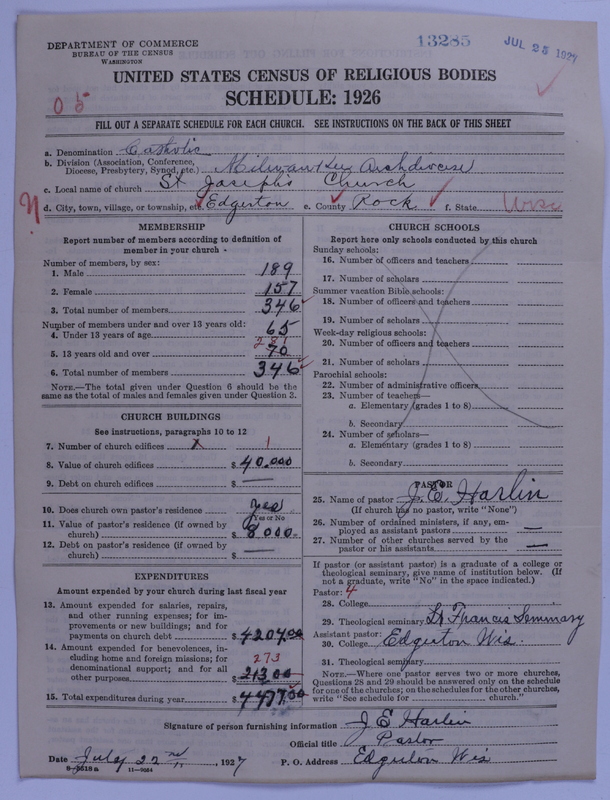 DEPARTMENT OF COMMERCE
BUREAU OF THE CENSUS
WASHINGTON
13285
JUL 25 1927
UNITED STATES CENSUS OF RELIGIOUS BODIES
SCHEDULE: 1926
05
FILL OUT A SEPARATE SCHEDULE FOR EACH CHURCH. SEE INSTRUCTIONS ON THE BACK OF THIS SHEET
a. Denomination Catholic
b. Division (Association, Conference, Diocese, Presbytery, Synod, etc.) Milwaukee Archdiocese
c. Local name of church St Joseph's Church
d. City, town, village, or township, etc. Edgerton e. County Rock f. State Wisc
MEMBERSHIP
Report number of members according to definition of member in your church
Number of members, by sex:
1. Male 189
2. Female 157
3. Total number of members 346
Number of members under and over 13 years old:
4. Under 13 years of age 65
281
5. 13 years old and over 70
6. Total number of members 346
NOTE.—The total given under Question 6 should be the same as the total of males and females given under Question 3.
CHURCH BUILDINGS
See instructions, paragraphs 10 to 12
7. Number of church edifices 1
8. Value of church edifices $40,000
9. Debt on church edifices $ —
10. Does church own pastor's residence yes
(Yes or No)
11. Value of pastor's residence (if owned by church) $8,000
12. Debt on pastor's residence (if owned by church) $ —
EXPENDITURES
Amount expended by your church during last fiscal year
13. Amount expended for salaries, repairs, and other running expenses; for improvements or new buildings; and for payments on church debt $4204.00
14. Amount expended for benevolences, including home and foreign missions; for denominational support; and for all other purposes
273
$213.00
15. Total expenditures during year $4477.00
CHURCH SCHOOLS
Report here only schools conducted by this church
Sunday schools:
16. Number of officers and teachers
17. Number of scholars
Summer vacation Bible schools:
18. Number of officers and teachers
19. Number of scholars
Week-day religious schools:
20. Number of officers and teachers
21. Number of scholars
Parochial schools:
22. Number of administrative officers
23. Number of teachers—
a. Elementary (grades 1 to 8)
b. Secondary
24. Number of scholars—
a. Elementary (grades 1 to 8)
b. Secondary
PASTOR
25. Name of pastor J. E. Harlin
(If church has no pastor, write "None")
26. Number of ordained ministers, if any, employed as assistant pastors —
27. Number of other churches served by the pastor or his assistants —
If pastor (or assistant pastor) is a graduate of a college or theological seminary, give name of institution below. (If not a graduate, write "No" in the space indicated.)
Pastor: 4
28. College
29. Theological seminary St Francis Seminary
Assistant pastor:
30. College Edgerton Wis.
31. Theological seminary
NOTE.—Where one pastor serves two or more churches, Questions 28 and 29 should be answered only on the schedule for one of the churches; on the schedules for the other churches, write "See schedule for ________ church."
Signature of person furnishing information J E Harlin
Official title Pastor
Date July 22nd, 1927 P. O. Address Edgerton Wis
8-5618a 11-9034